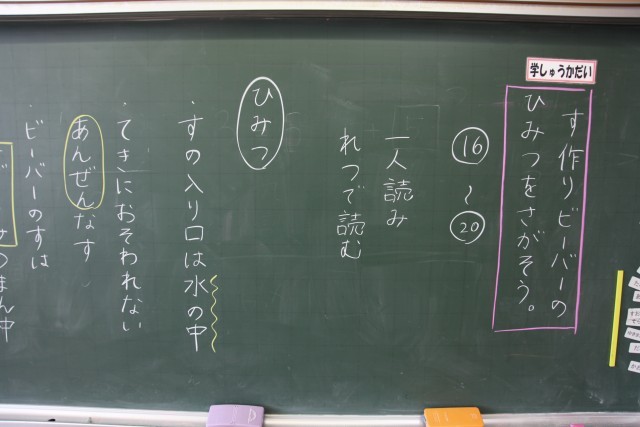 学しゅうかだい
す作りビーバーの
ひみつをさがそう。
16
〜
20
一人読み
れつで読む
ひみつ
・すの入り口は水の中
・てきにおそわれない
あんぜんなす
・ビーバーのすは